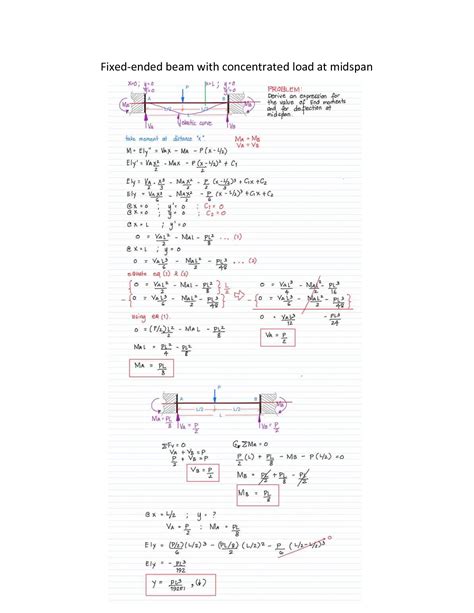 Fixed-ended beam with concentrated load at midspan
x=0; y=0
y'=0
x=L; y=0
y'=0
P
PROBLEM:
Derive an expression for
the value of end moments
and for deflection at
midspan.
MA
A
B
MB
L/2
L/2
L
elastic curve
VA
VB
take moment at distance "x".
MA = MB
VA = VB
M = EIy" = VAx - MA - P(x-L/2)
EIy' = VAx²/2 - MAx - P/2 (x-L/2)² + C1
EIy = VA/2 · x³/3 - MAx²/2 - P/2·3 (x-L/2)³ + C1x + C2
EIy = VAx³/6 - MAx²/2 - P/6 (x-L/2)³ + C1x + C2
@ x = 0 ; y' = 0 : C1 = 0
@ x = 0 ; y = 0 : C2 = 0
@ x = L ; y' = 0
0 = VAL²/2 - MAL - PL²/8 ... (1)
@ x = L ; y = 0
0 = VAL³/6 - MAL²/2 - PL³/48 ... (2)
equate eq (1) & (2)
{0 = VAL²/2 - MAL - PL²/8} L/2
-{0 = VAL³/6 - MAL²/2 - PL³/48}
⇒
0 = VAL³/4 - MAL²/2 - PL³/16
-{0 = VAL³/6 - MAL²/2 - PL³/48}
0 = VAL³/12 - PL³/24
VA = P/2
using eq (1).
0 = (P/2)L²/2 - MAL - PL²/8
MAL = PL²/4 - PL²/8
MA = PL/8
P
A
B
MB
L/2
L/2
L
MA = PL/8
VA = P/2
VB = P/2
ΣFv = 0
VA + VB = P
P/2 + VB = P
VB = P/2
ΣMA = 0
P/2 (L) + PL/8 - MB - P(L/2) = 0
MB = PL/2 + PL/8 - PL/2
MB = PL/8
@ x = L/2 ; y = ?
VA = P/2 ; MA = PL/8
EIy = (P/2)/6 (L/2)³ - (PL/8)/2 (L/2)² - P/6 (L/2-L/2)³ 0
EIy = - PL³/192
y = PL³/192EI , (↓)